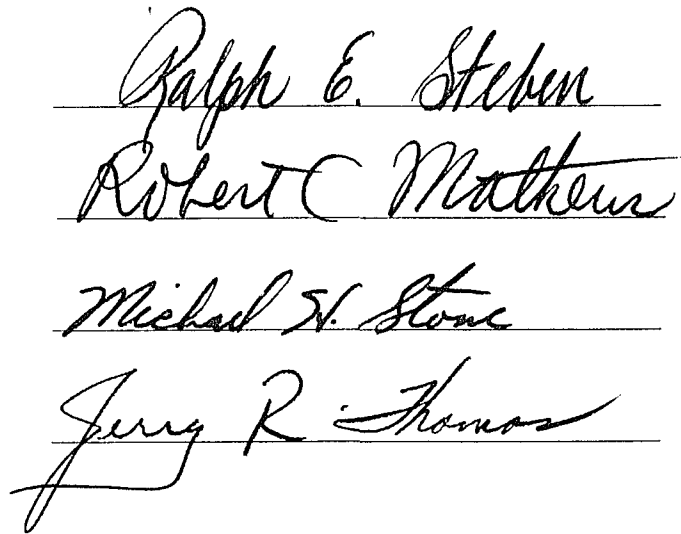 Ralph E. Steben
Robert C Mathews
Michael H. Stone
Jerry R Thomas